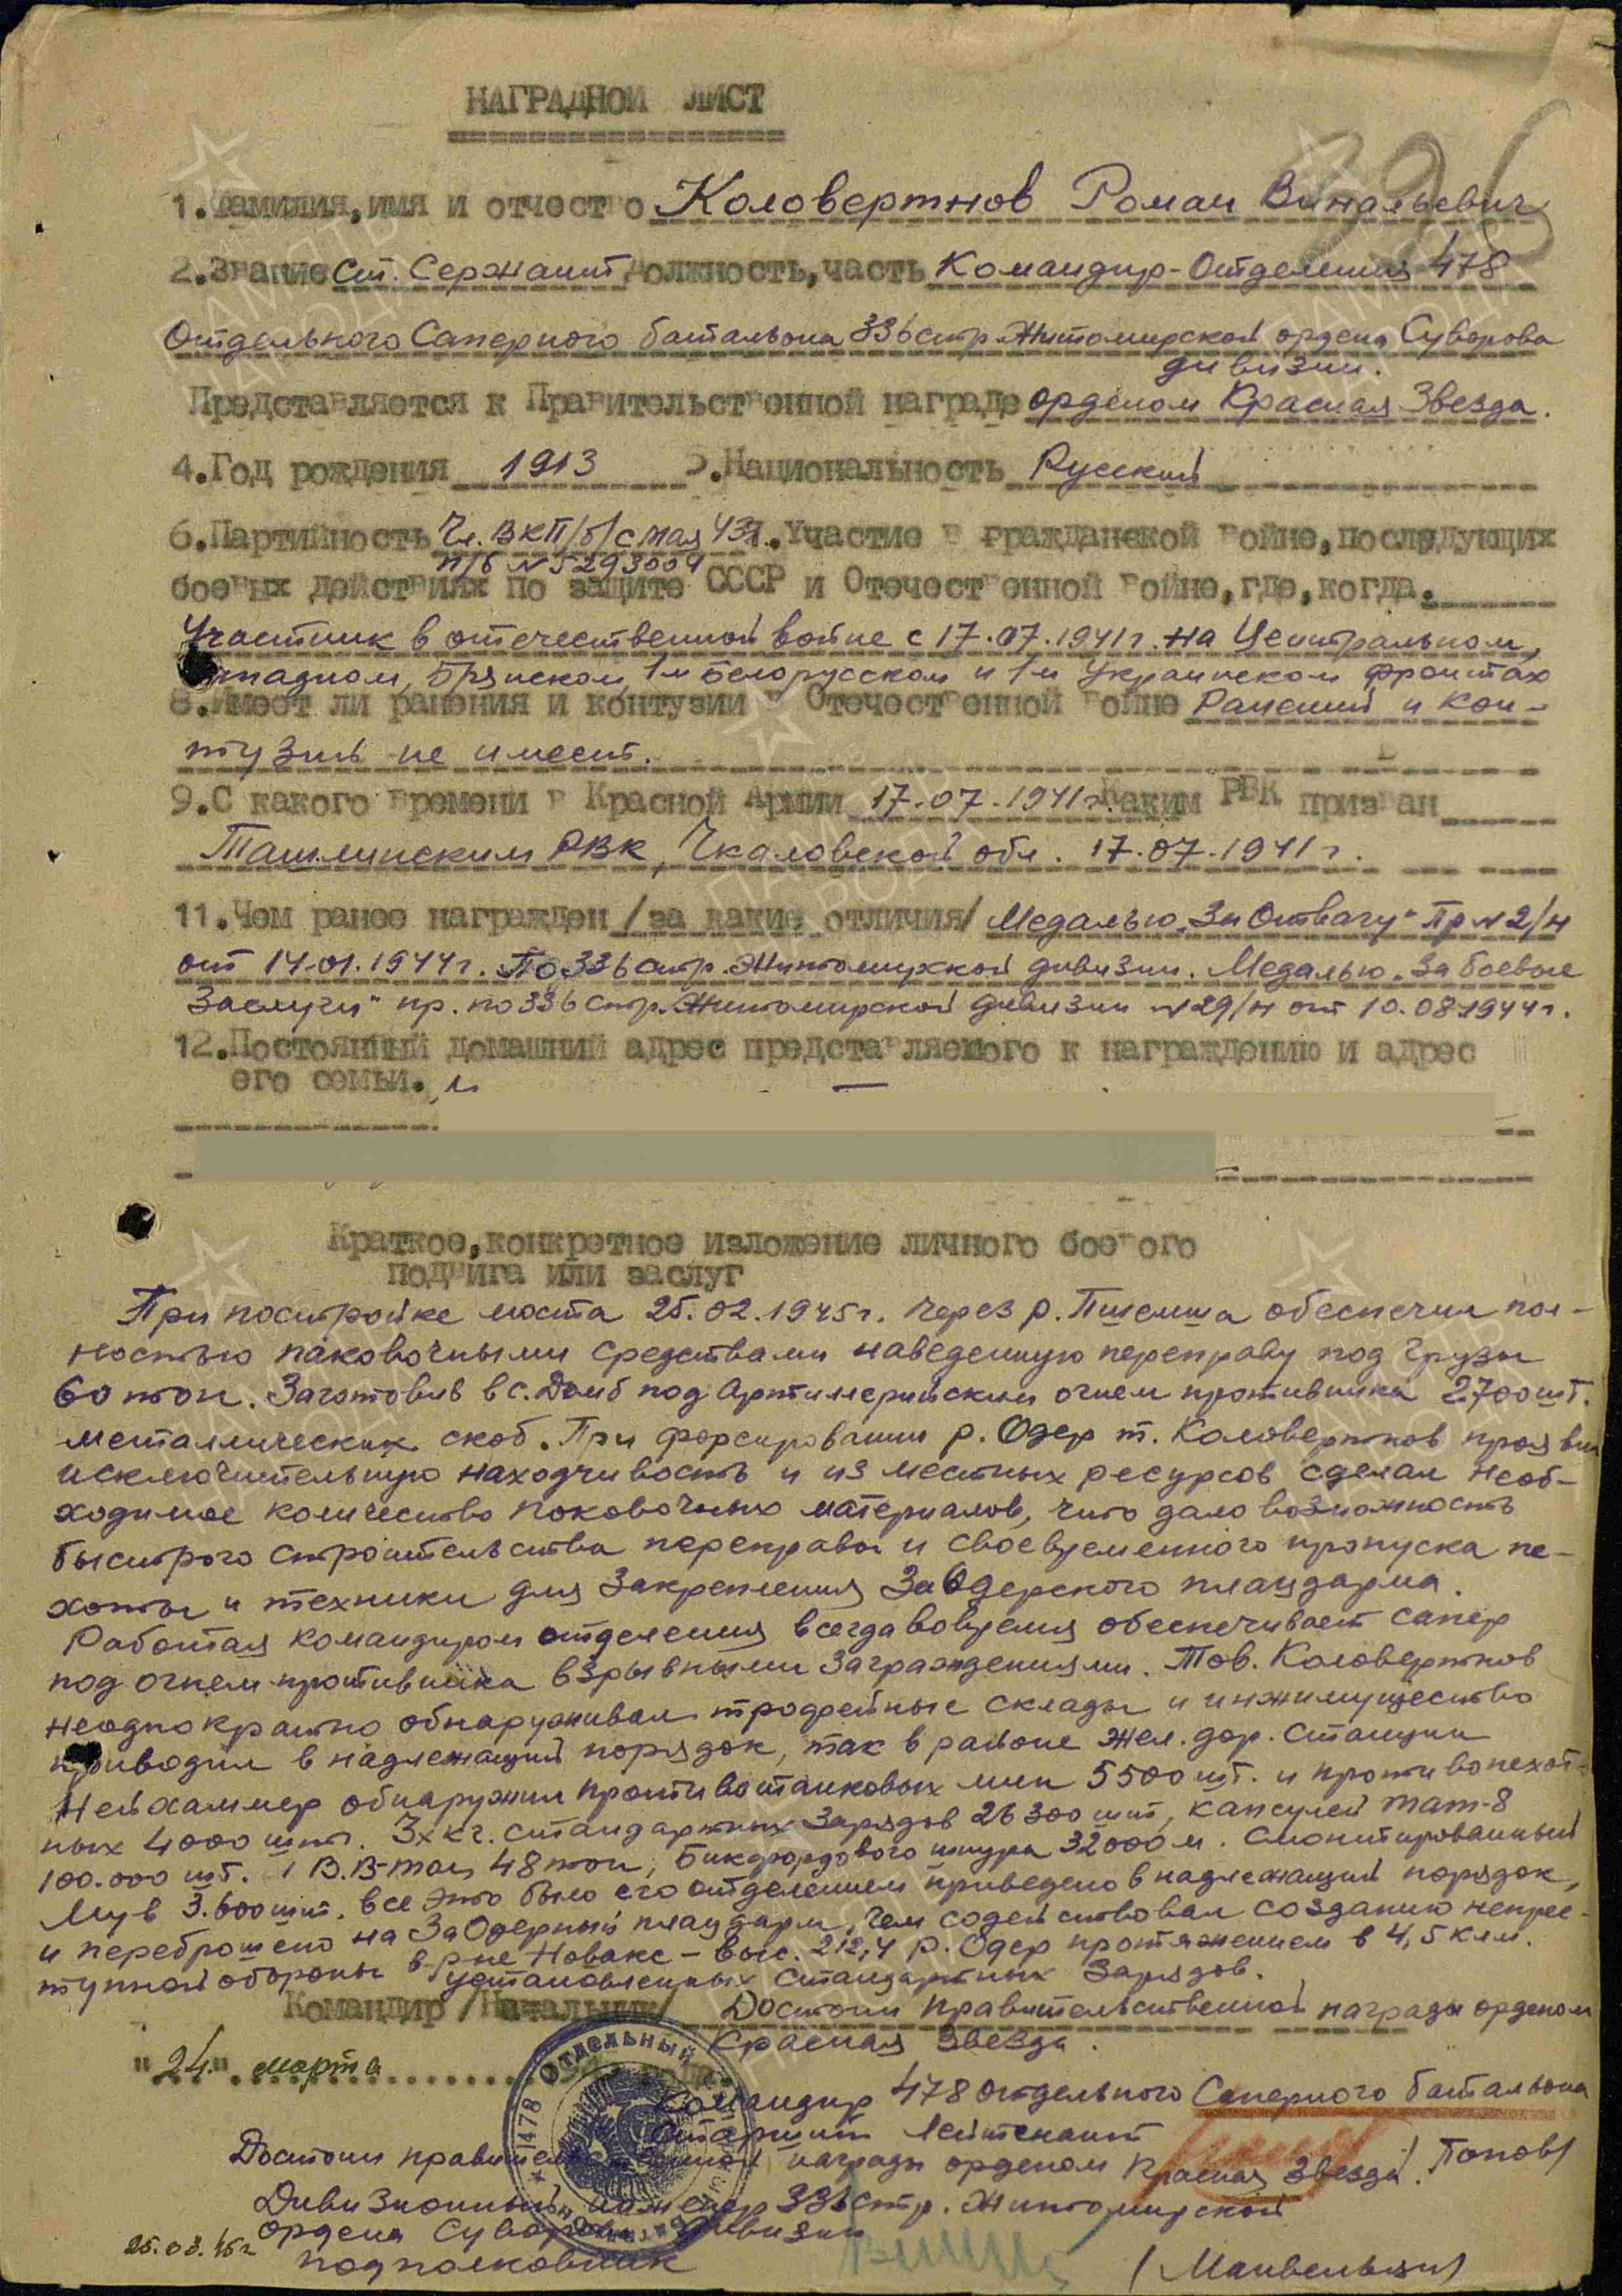 НАГРАДНОЙ ЛИСТ
1.Фамилия,имя и отчество Коловертнов Роман Винальевич
2.Звание Ст. Сержант должность,часть Командир-Отделения 478
Отдельного Саперного батальона 336 стр. Житомирской ордена Суворова
дивизии.
Представляется к Правительственной награде орденом Красная Звезда.
4.Год рождения 1913 5.Национальность Русский
6.Партийность Чл. ВКП/б/ с мая 43 7.Участие в гражданской войне,последующих
п/б №5293004
боевых действиях по защите СССР и Отечественной войне,где,когда.
Участник в отечественной войне с 17.07.1941г. на Центральном,
Западном, Брянском, 1м Белорусском и 1м Украинском фронтах
8.Имеет ли ранения и контузии в Отечественной войне Ранений и кон-
тузий не имеет.
9.С какого времени в Красной Армии 17.07.1941г. Каким РВК призван
Ташлинским РВК, Чкаловской обл. 17.07.1941г.
11.Чем ранее награжден /за какие отличия/ Медалью „За Отвагу" Пр №2/н
от 14.01.1944г. По 336 стр. Житомирской дивизии. Медалью „За боевые
Заслуги" пр. по 336 стр. Житомирской дивизии №29/н от 10.08.1944г.
12.Постоянный домашний адрес представляемого к награждению и адрес
его семьи.
Краткое,конкретное изложение личного боевого
подвига или заслуг
При постройке моста 25.02.1945г. через р. Пшемша обеспечил пол-
ностью паковочными средствами наведенную переправу под грузы
60 тон. Заготовив в с. Домб под Артилерийским огнем противника 2700 шт.
металлических скоб. При форсировании р. Одер т. Коловертнов проявил
исключительную находчивость и из местных ресурсов сделал необ-
ходимое количество поковочных материалов, что дало возможность
быстрого строительства переправы и своевременного пропуска пе-
хоты и техники для Закрепления ЗаОдерского плацдарма.
Работая командиром отделения всегда вовремя обеспечивает сапер
под огнем противника взрывными заграждениями. Тов. Коловертнов
неоднократно обнаруживал трофейные склады и инжимущество
приводил в надлежащий порядок, так в районе жел. дор. станции
Нейхаммер обнаружил противотанковых мин 5500 шт. и противопехот-
ных 4000 шт. 3х кг. стандартных зарядов 26300 шт, капсулей тат-8
100.000 шт. В.В-тол 48 тон, Бикфордового шнура 32000 м. Смонтированный
Мув 3.600 шт. все это было его отделением приведено в надлежащий порядок,
и переброшено на ЗаОдерный плацдарм, чем содействовал созданию непрес-
тупной обороны в р-не Новаке - выс. 212,4 р. Одер протяжением в 4,5 клм.
установленных стандартных зарядов.
Командир /Начальник/ Достоин правительственной награды орденом
Красная Звезда.
"24" марта
Командир 478 отдельного Саперного батальона
Старший Лейтенант
/Попов/
Достоин правительственной награды орденом Красная Звезда.
Дивизионный инженер 336 стр. Житомирской
ордена Суворова дивизии
25.03.45г подполковник
478 ОТДЕЛЬНЫЙ
ПАМЯТЬ НАРОДА